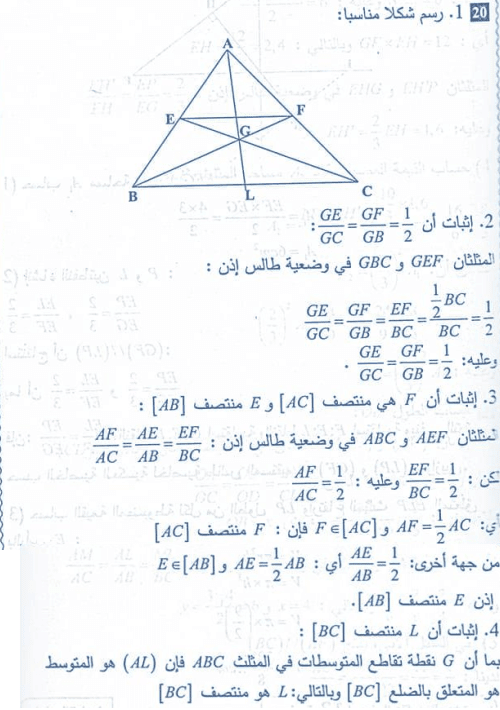 20 1. رسم شكلا مناسبا:
A
E F
G
B L C
2. إثبات أن GE/GC = GF/GB = 1/2 :
المثلثان GEF و GBC في وضعية طالس إذن :
GE/GC = GF/GB = EF/BC = (1/2 BC)/BC = 1/2
وعليه: GE/GC = GF/GB = 1/2 .
3. إثبات أن F هي منتصف [AC] و E منتصف [AB] :
المثلثان AEF و ABC في وضعية طالس إذن : AF/AC = AE/AB = EF/BC
لكن : EF/BC = 1/2 وعليه : AF/AC = 1/2
أي: AF = 1/2 AC و F∈[AC] فإن : F منتصف [AC]
من جهة أخرى: AE/AB = 1/2 أي : AE = 1/2 AB و E∈[AB]
إذن E منتصف [AB].
4. إثبات أن L منتصف [BC] :
بما أن G نقطة تقاطع المتوسطات في المثلث ABC فإن (AL) هو المتوسط
هو المتعلق بالضلع [BC] وبالتالي: L هو منتصف [BC]